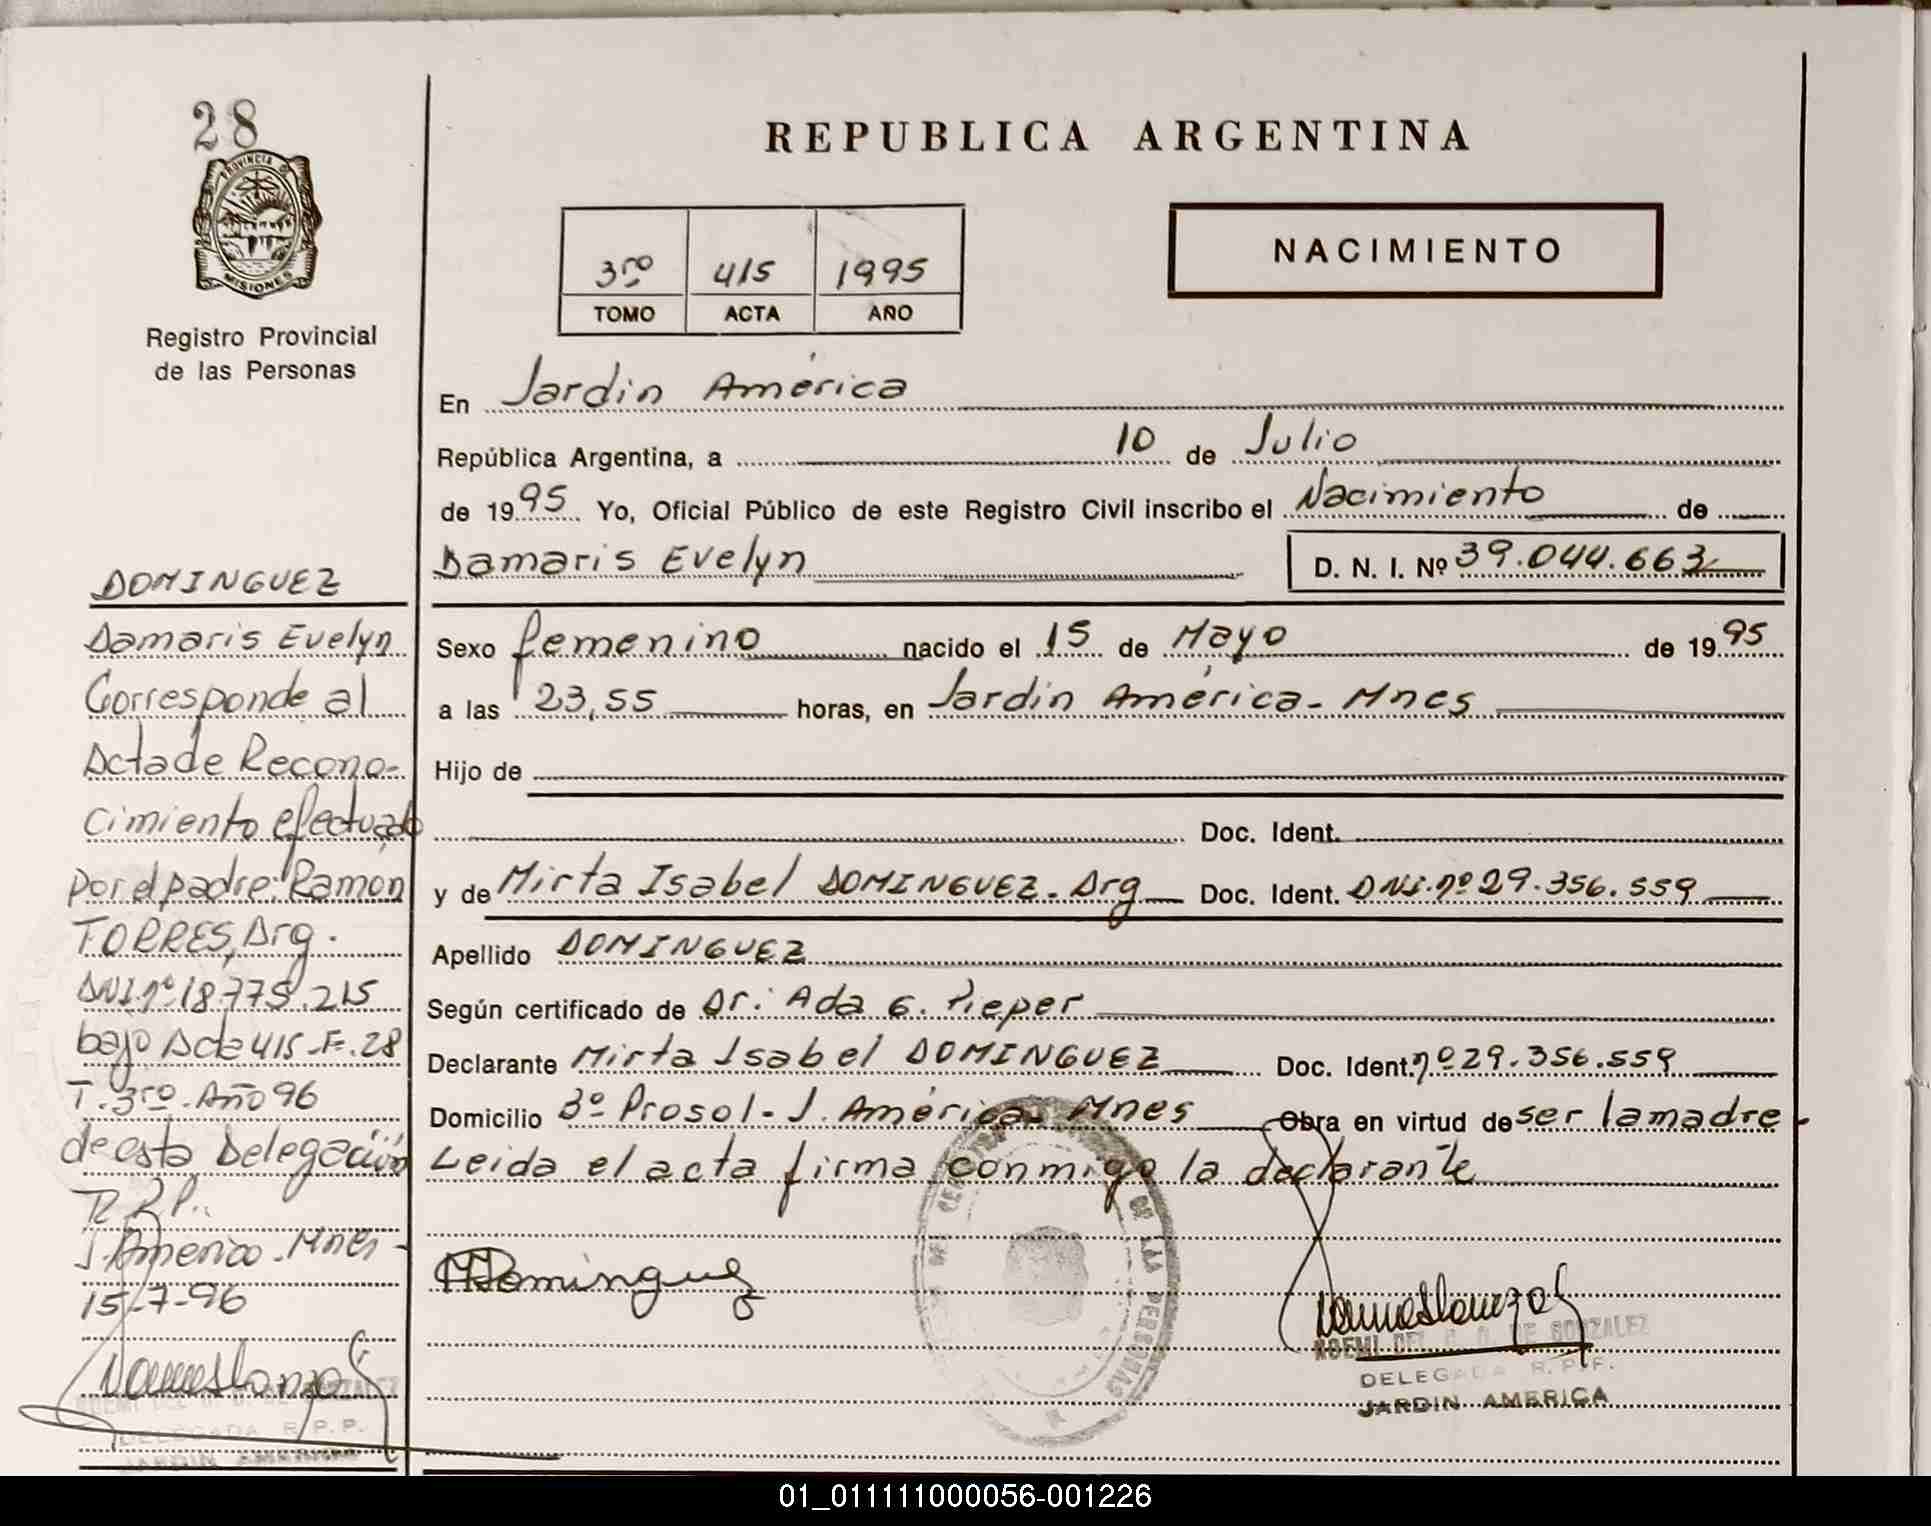 28
PROVINCIA DE
MISIONES
Registro Provincial
de las Personas
REPUBLICA ARGENTINA
3ro 415 1995
TOMO ACTA AÑO
NACIMIENTO
En Jardin América
República Argentina, a 10 de Julio
de 1995 Yo, Oficial Público de este Registro Civil inscribo el Nacimiento de
Damaris Evelyn D. N. I. Nº 39.044.663
Sexo femenino nacido el 15 de Mayo de 1995
a las 23,55 horas, en Jardin América - Mnes
Hijo de
Doc. Ident.
y de Mirta Isabel DOMINGUEZ - Arg Doc. Ident. DNI. nº 29.356.559
Apellido DOMINGUEZ
Según certificado de Dr: Ada G. Pieper
Declarante Mirta Isabel DOMINGUEZ Doc. Ident. nº 29.356.559
Domicilio 3º Prosol - J. América - Mnes Obra en virtud de ser la madre -
Leida el acta firma conmigo la declarante
MDominguez
NOEMI DEL DE GONZALEZ
DELEGADA R.P.P.
JARDIN AMERICA
DE LAS PERSONAS
DOMINGUEZ
Damaris Evelyn
Corresponde al
Acta de Recono-
cimiento efectuado
por el padre: Ramón
TORRES, Arg.
DNI. nº 18.775.215
bajo Acta 415 - F. 28
T. 3ro. Año 96
de esta Delegación
R.P.P.
J. America - Mnes -
15-7-96
NOEMI DEL DE GONZALEZ
DELEGADA R.P.P.
JARDIN AMERICA
01_011111000056-001226